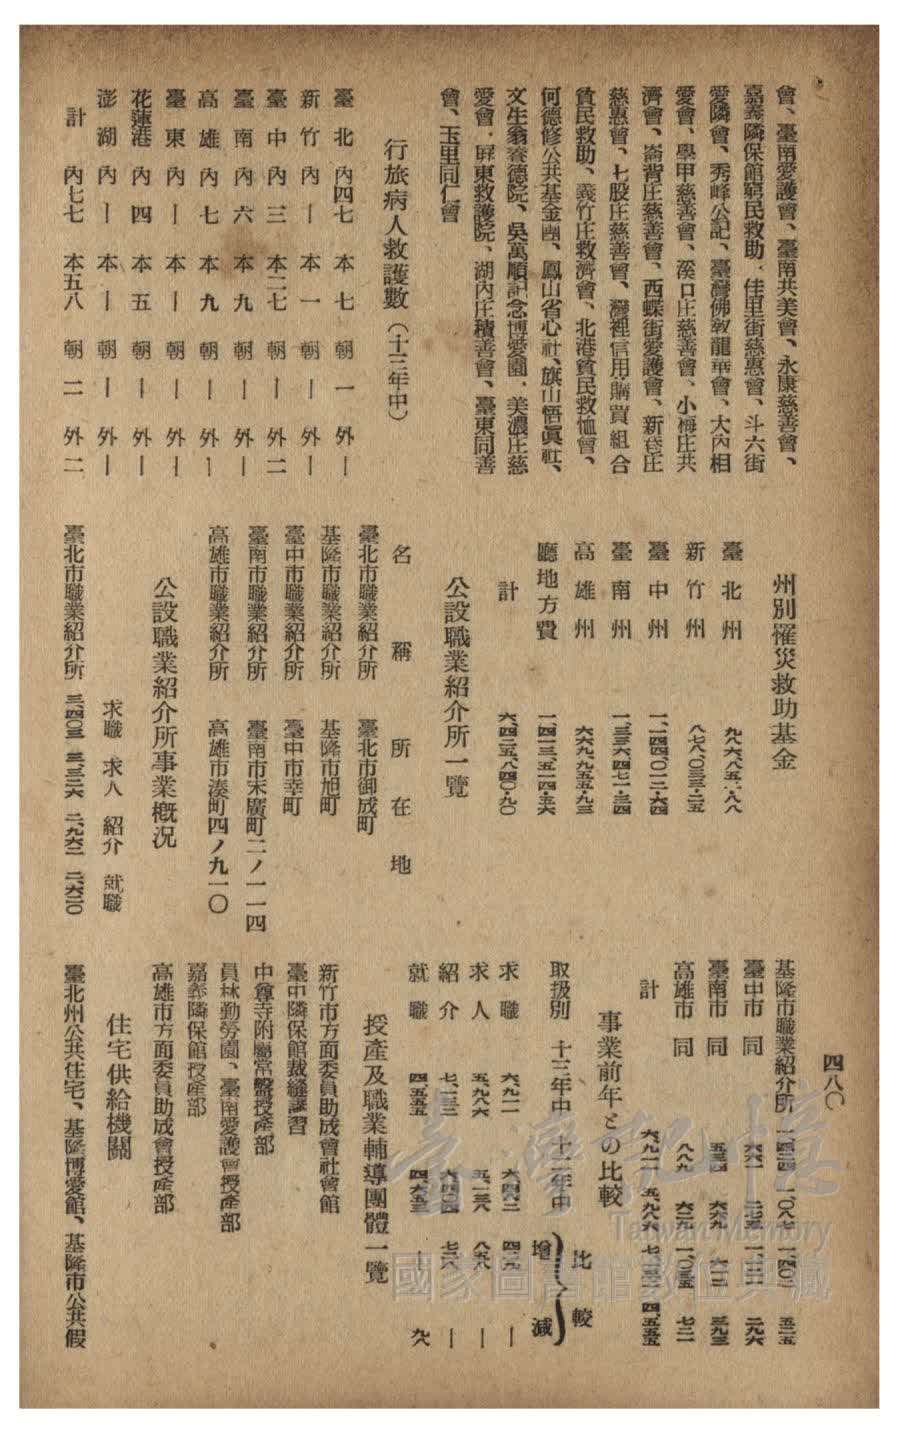 四八〇
會、臺南愛護會、臺南共美會、永康慈善會、
嘉義隣保館窮民救助、佳里街慈惠會、斗六街
愛隣會、秀峰公記、臺灣佛敎龍華會、大內相
愛會、學甲慈善會、溪口庄慈善會、小梅庄共
濟會、崙背庄慈善會、西螺街愛護會、新巷庄
慈惠會、七股庄慈善會、灣裡信用購買組合
貧民救助、義竹庄救濟會、北港貧民救恤會、
何德修公共基金團、鳳山省心社、旗山悟眞社、
文生翁養德院、吳萬順記念博愛園、美濃庄慈
愛會、屏東救護院、湖內庄積善會、臺東同善
會、玉里同仁會
行旅病人救護數（十三年中）
臺北 內四七 本七 朝一 外ー
新竹 內ー 本一 朝ー 外ー
臺中 內三 本二七 朝ー 外二
臺南 內六 本九 朝ー 外ー
高雄 內七 本九 朝ー 外ー
臺東 內ー 本ー 朝ー 外ー
花蓮港 內四 本五 朝ー 外ー
澎湖 內ー 本ー 朝ー 外ー
計 內七七 本五八 朝二 外二
州別罹災救助基金
臺北州 九八六、八五一・八八
新竹州 八七八、〇三三・二五
臺中州 一、一四四、〇二二・六四
臺南州 一、三三六、四七一・三四
高雄州 六六九、九五五・九三
廳地方費 一、四一三、五一四・夫
計 六、四二五、八四〇・九〇
公設職業紹介所一覽
名稱 所在地
臺北市職業紹介所 臺北市御成町
基隆市職業紹介所 基隆市旭町
臺中市職業紹介所 臺中市幸町
臺南市職業紹介所 臺南市末廣町二ノ一一四
高雄市職業紹介所 高雄市湊町四ノ九一〇
公設職業紹介所事業概況
求職 求人 紹介 就職
臺北市職業紹介所 三、四〇三 三、三二六 二、九六二 二、六二〇
基隆市職業紹介所 一、四二四 一、〇八七 一、四〇二 五二五
臺中市 同 六六一 二七五 一、二二一 二九六
臺南市 同 五三四 六六九 六一二 三九三
高雄市 同 八八九 六二九 一、〇三五 七二一
計 六、九一一 五、九八六 七、二三二 四、五五五
事業前年との比較
取扱別 十三年中 十二年中 比較 增 減
求職 六、九一一 六、四六二 四四九 ー
求人 五、九八六 五、一二八 八五八 ー
紹介 七、一三二 六、四〇四 七二八 ー
就職 四、五五五 四、六五三 ー 九八
授產及職業輔導團體一覽
新竹市方面委員助成會社會館
臺中隣保館裁縫講習
中尊寺附屬常盤授產部
員林勤勞園、臺南愛護會授產部
嘉義隣保館授產部
高雄市方面委員助成會授產部
住宅供給機關
臺北州公共住宅、基隆博愛館、基隆市公共假
臺灣記憶
Taiwan Memory
國家圖書館數位典藏